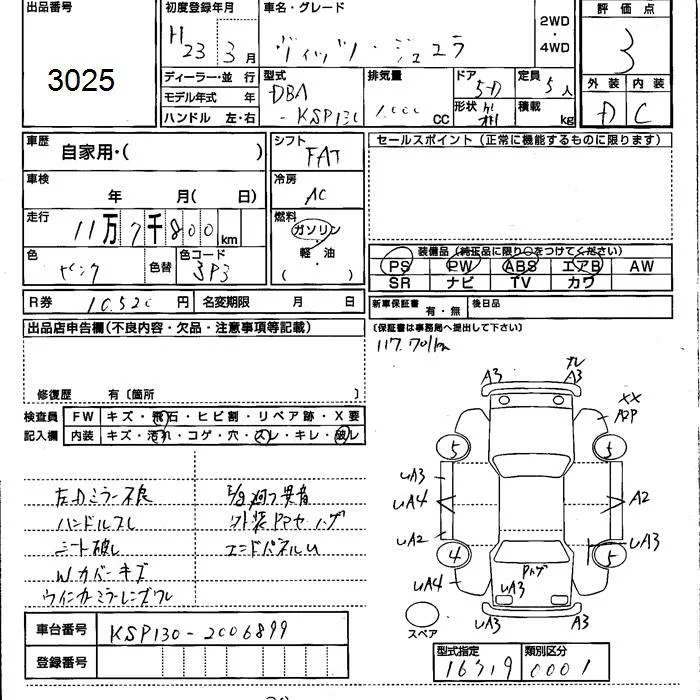 出品番号
3025
初度登録年月
H 23 3月
車名・グレード
ヴィッツ・ジュエラ
2WD
・
4WD
評価点
3
ディーラー・並行
モデル年式 年
ハンドル 左・右
型式
DBA
-KSP130
排気量
1,000 CC
ドア
5D
形状
定員
5人
積載
kg
外装 内装
D C
車歴
自家用・( )
シフト
FAT
セールスポイント (正常に機能するものに限ります)
車検
年 月( 日)
冷房
AC
走行
11万7千800km
燃料
ガソリン
・
軽・油
( )
色
ピンク
色替
色コード
3P3
装備品(純正品に限り○をつけてください)
PS PW ABS エアB AW
SR ナビ TV カワ
R券 10,520円
名変期限 月 日
新車保証書 有・無
後日品
(保証書は事務局へ提出して下さい)
出品店申告欄(不良内容・欠品・注意事項等記載)
117,701km
修復歴 有〔箇所 〕
検査員
記入欄
FW キズ・飛石・ヒビ割・リペア跡・X要
内装 キズ・汚れ・コゲ・穴・スレ・キレ・破レ
左Dミラー不良
ハンドルスレ
シート破レ
Wカバーキズ
ウインカーミラーレンズワレ
外装PPセハゲ
エンドパネルU
A3 A3
XX
A2P
5 5
UA3
UA4
A2
UA2
UA3
4 5
UA4
Pハゲ
UA3
UA3 A3
スペア
車台番号 KSP130-2006899
登録番号
型式指定 類別区分
16719 0001